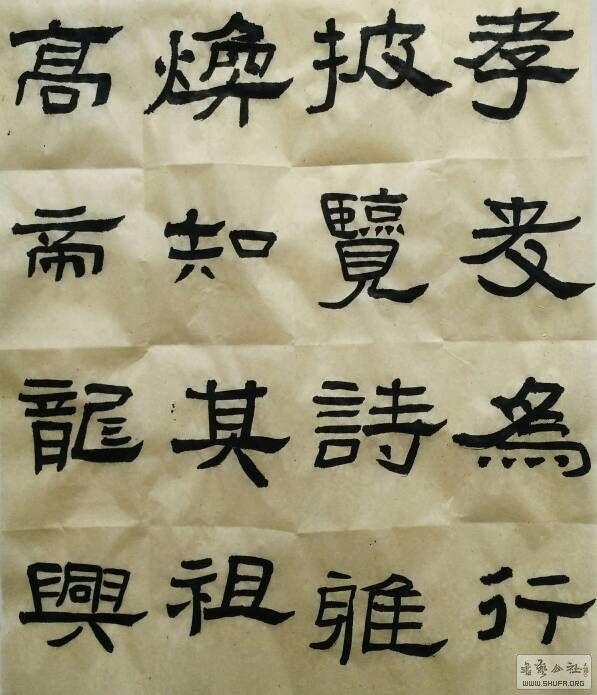 孝友為行
披覽詩雅
煥知其祖
高帝龍興
書藝公社
WWW.SHUFA.ORG